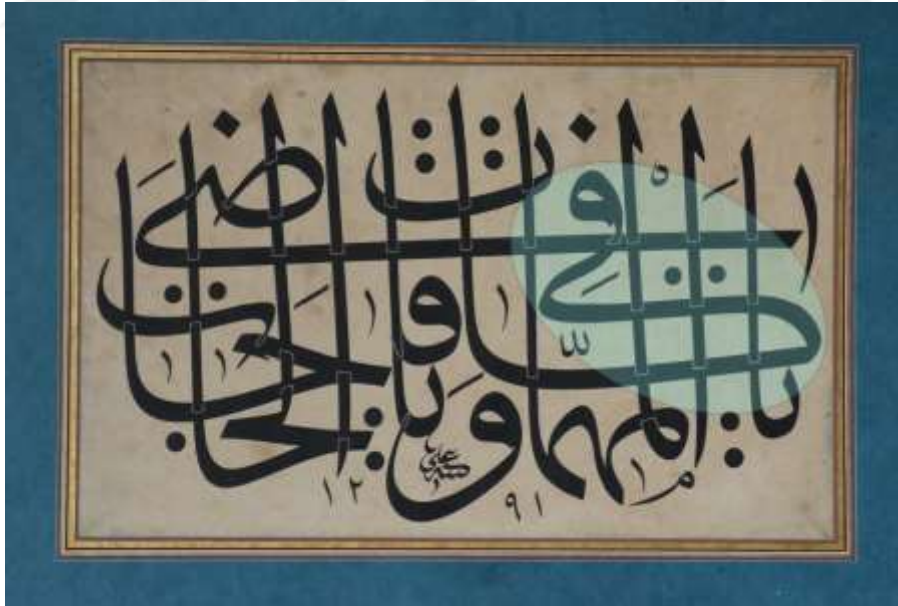 يا كافي المهمات ويا قاضي الحاجات
كتبه علي
١٢ ٩١